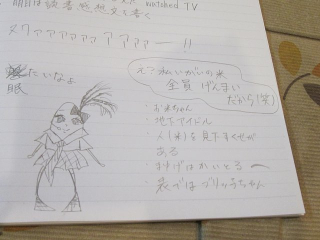 明日は読書感想文を書く watched TV
ヌワァァァァァァァァァー!!
たいなよ
眠
え?私いがいの米
全員 げんまい
だから(笑)
・お米ちゃん
・地下アイドル
・人(米)を見下すくせが
ある
・まゆげはかいとるー
・裏ではブリッ子ちゃん